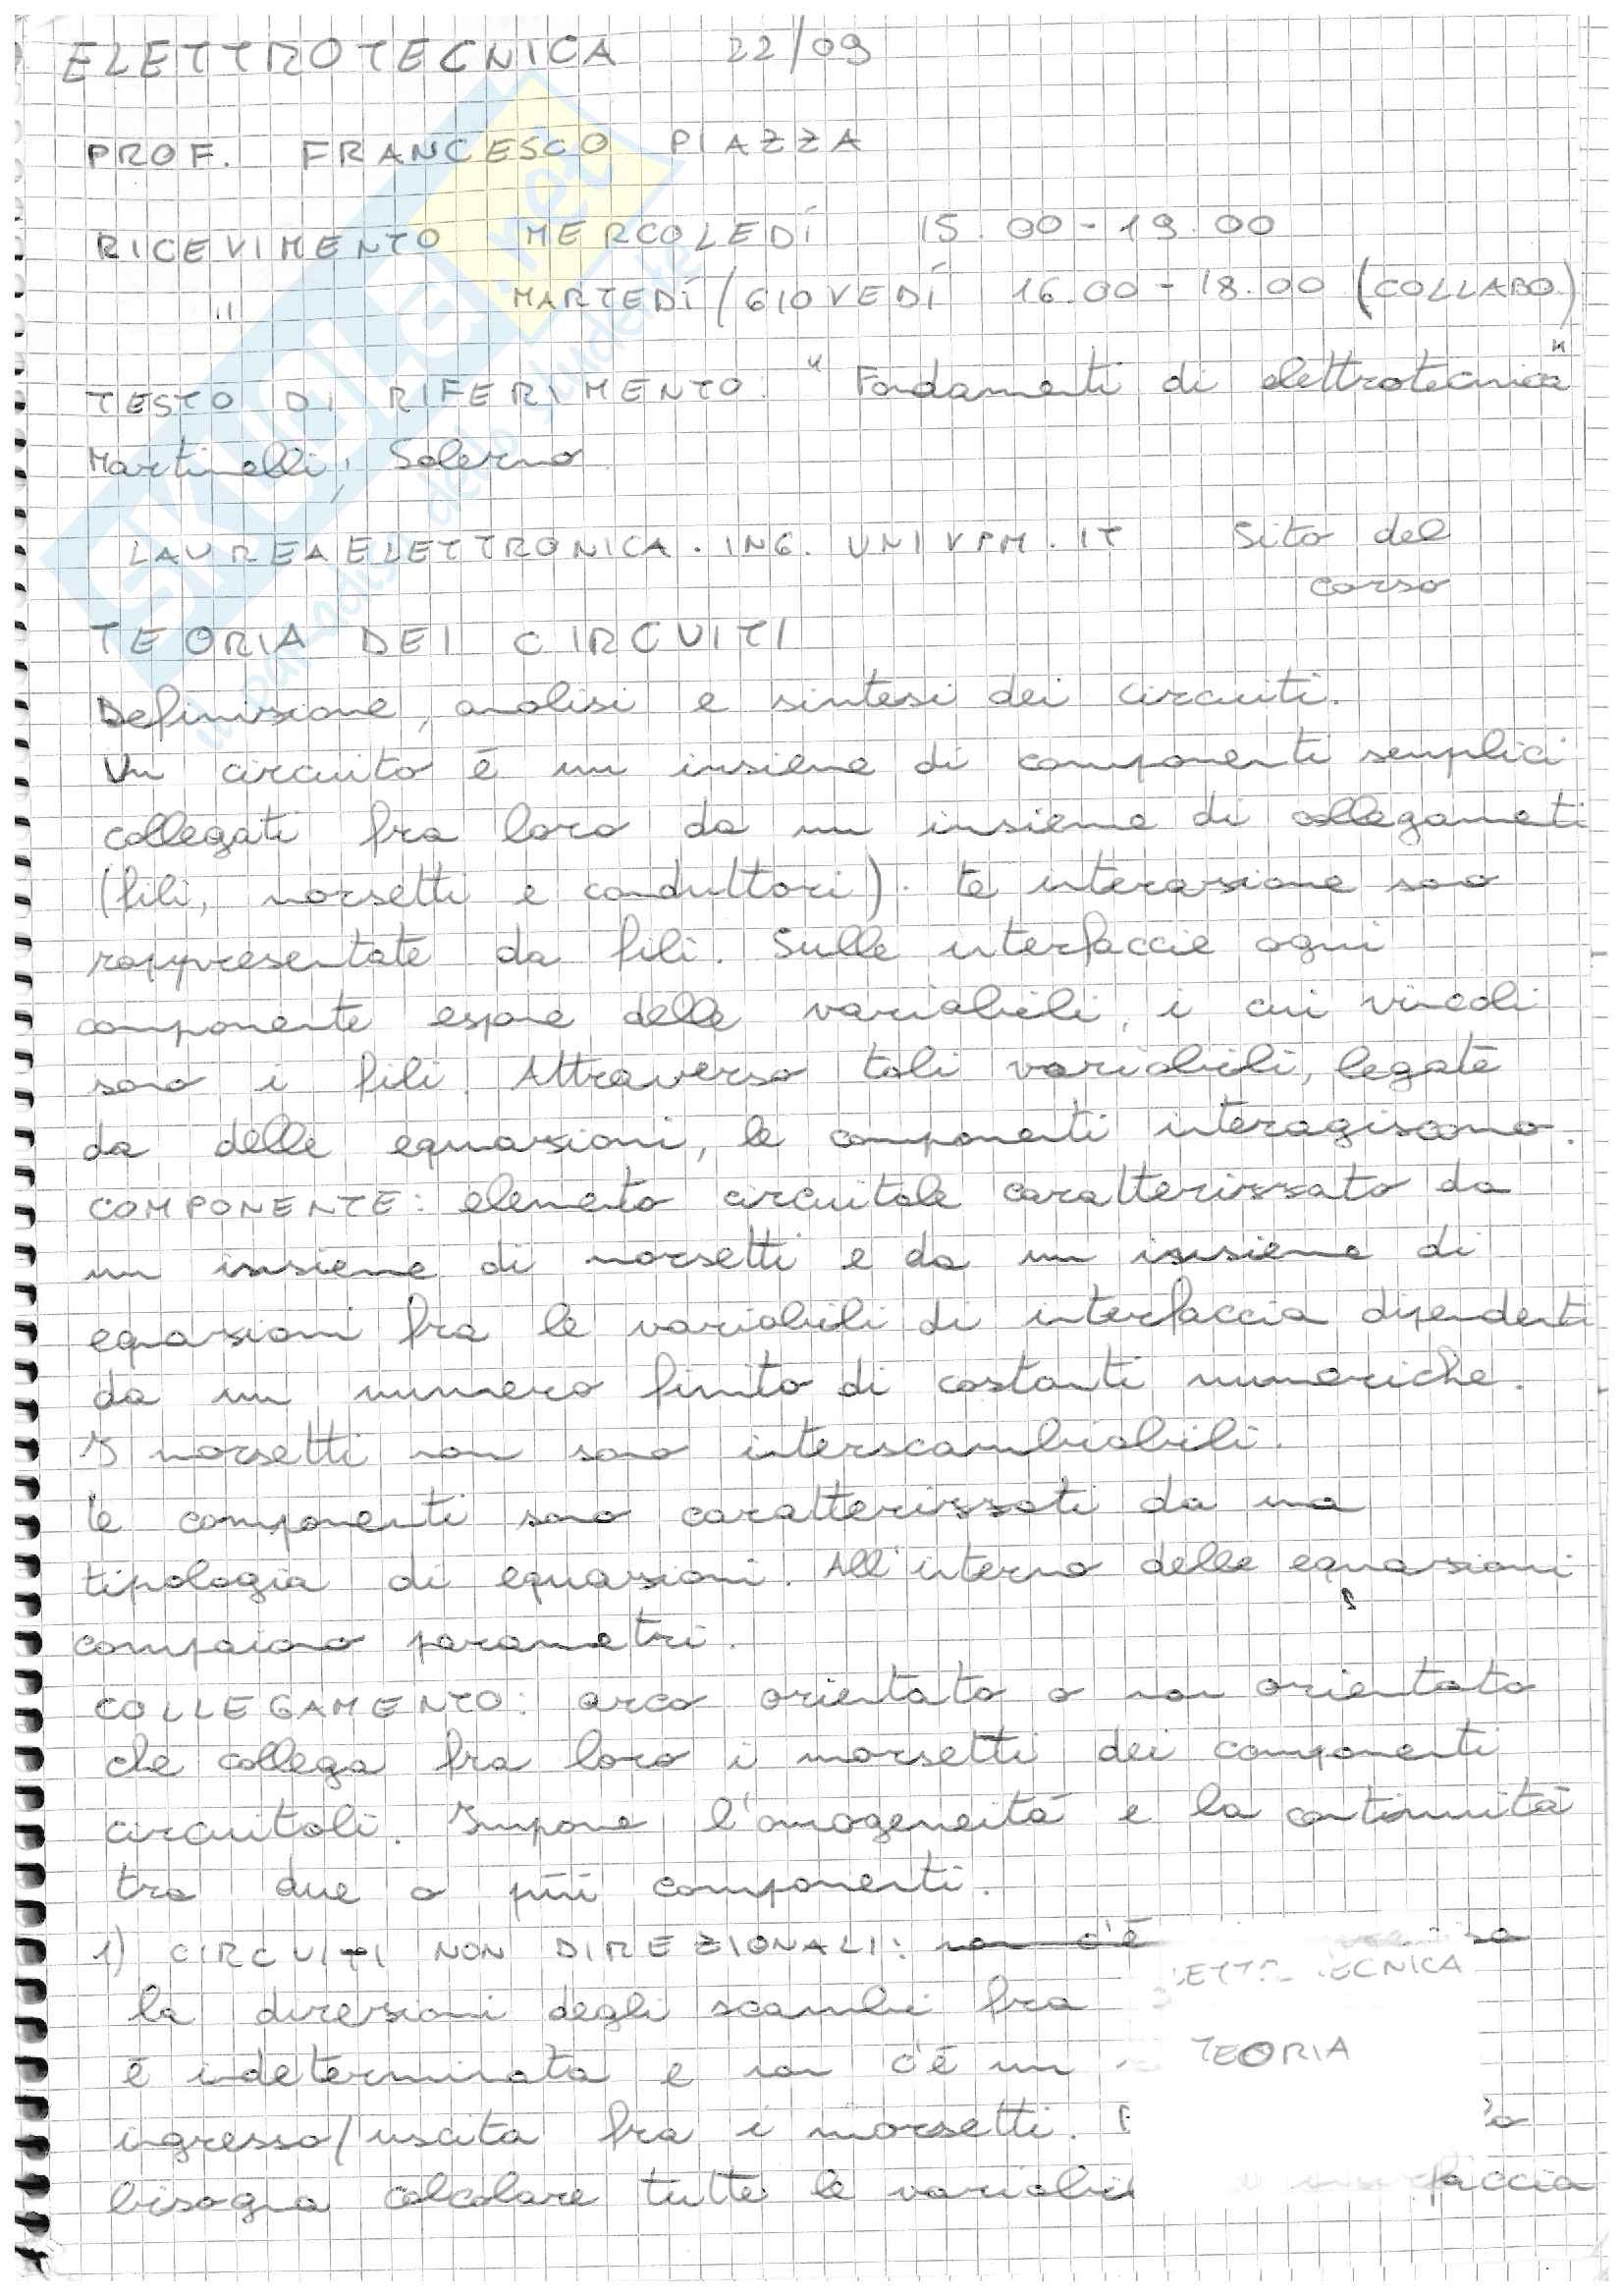 ELETTROTECNICA 22/09
PROF. FRANCESCO PIAZZA
RICEVIMENTO MERCOLEDÍ 15.00-19.00
" MARTEDÍ/GIOVEDÍ 16.00-18.00 (COLLABO.)
TESTO DI RIFERIMENTO: "Fondamenti di elettrotecnica"
Martinelli, Salerno
LAUREAELETTRONICA.ING.UNIVPM.IT Sito del
corso
TEORIA DEI CIRCUITI
Definizione, analisi e sintesi dei circuiti.
Un circuito é un insieme di componenti semplici
collegati fra loro da un insieme di collegameti
(fili, morsetti e conduttori). Le interazione sono
rappresentate da fili. Sulle interfaccie ogni
componente espone delle variabili, i cui vincoli
sono i fili. Attraverso tali variabili, legate
da delle equazioni, le componenti interagiscono.
COMPONENTE: elemento circuitale caratterizzato da
un insieme di morsetti e da un insieme di
equazioni fra le variabili di interfaccia dipendenti
da un numero finito di costanti numeriche.
I morsetti non sono interscambiabili.
Le componenti sono caratterizzati da una
tipologia di equazioni. All'interno delle equazioni
compaiono parametri.
COLLEGAMENTO: arco orientato o non orientato
che collega fra loro i morsetti dei componenti
circuitali. Impone l'omogeneitá e la continuitá
tra due o piú componenti.
1) CIRCUITI NON DIREZIONALI: non c'é
ECNICA
la direzioni degli scambi fra
TEORIA
é indeterminata e non c'é un
ingresso/uscita fra i morsetti.
bisogna calcolare tutte le variabili faccia